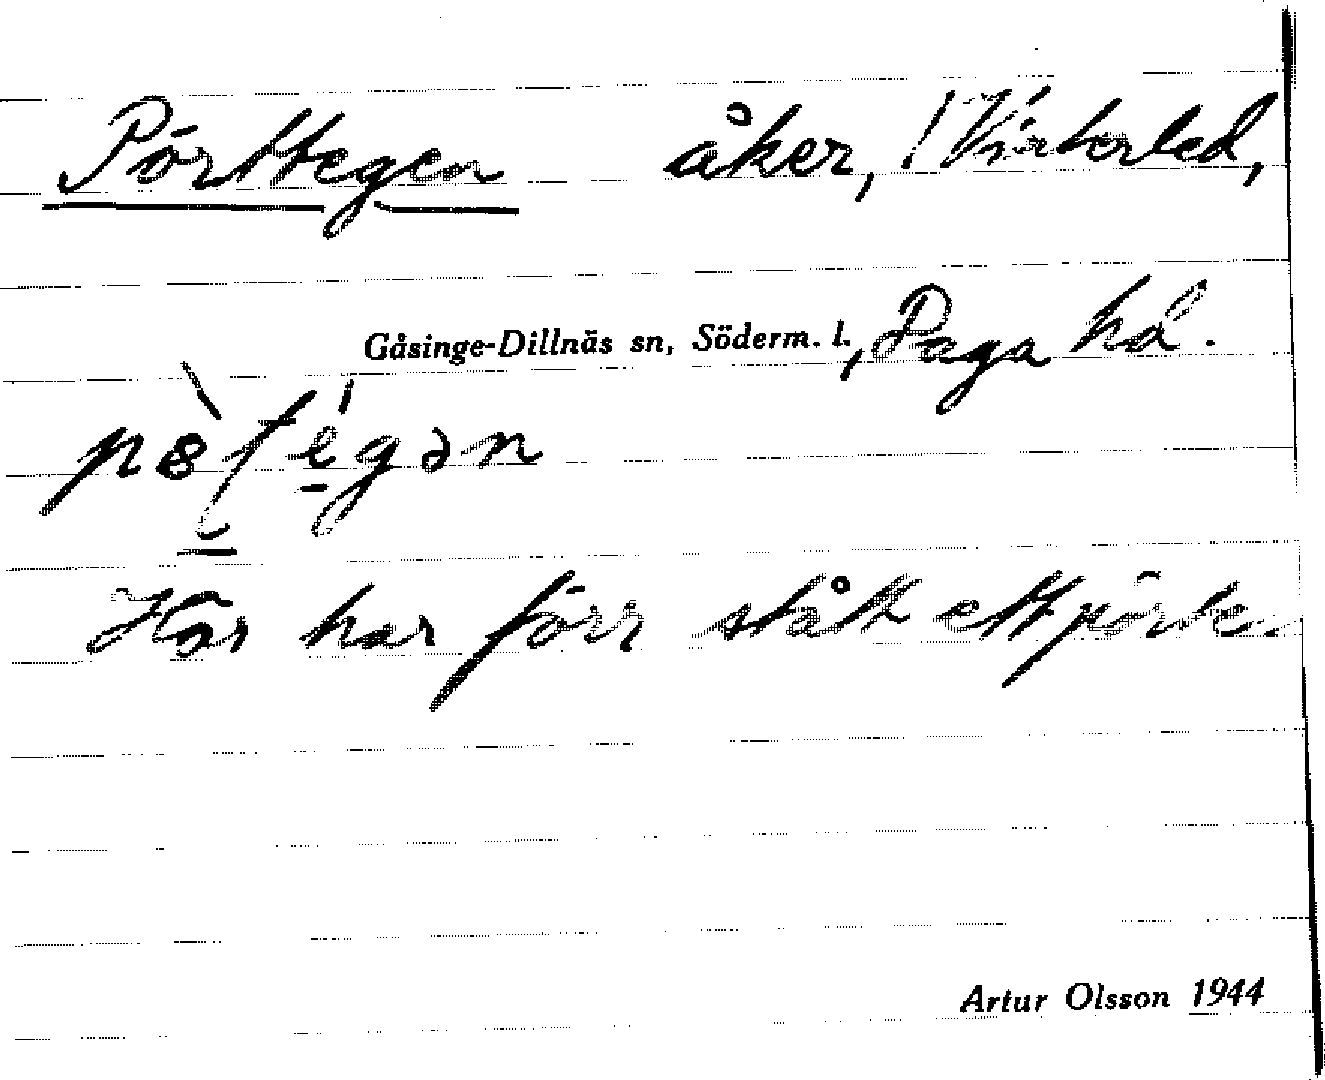 Pörttegen åker, ! Vinterled,
Gåsinge-Dillnäs sn, Söderm. l., Daga hd.
Här har förr stått ett pörte.
Artur Olsson 1944